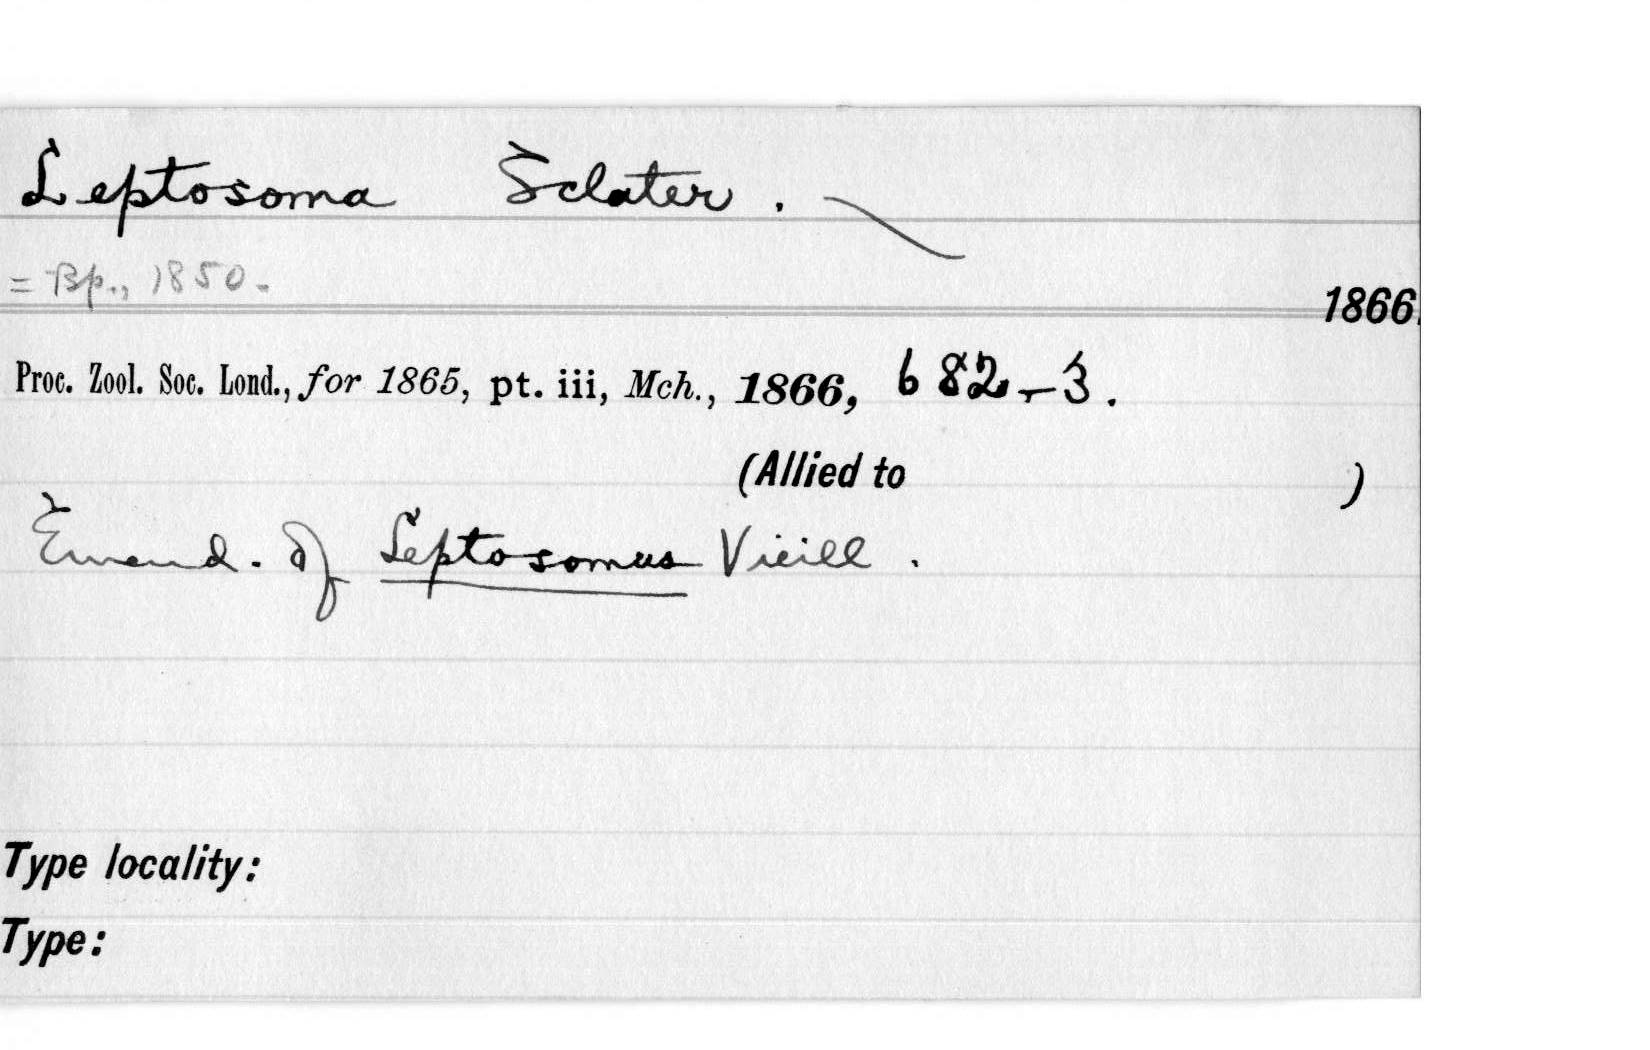 Leptosoma Sclater.
= Bp., 1850.
1866.
Proc. Zool. Soc. Lond., for 1865, pt. iii, Mch., 1866, 682-3.
(Allied to )
Emend. of Leptosomus Vieill.
Type locality:
Type: